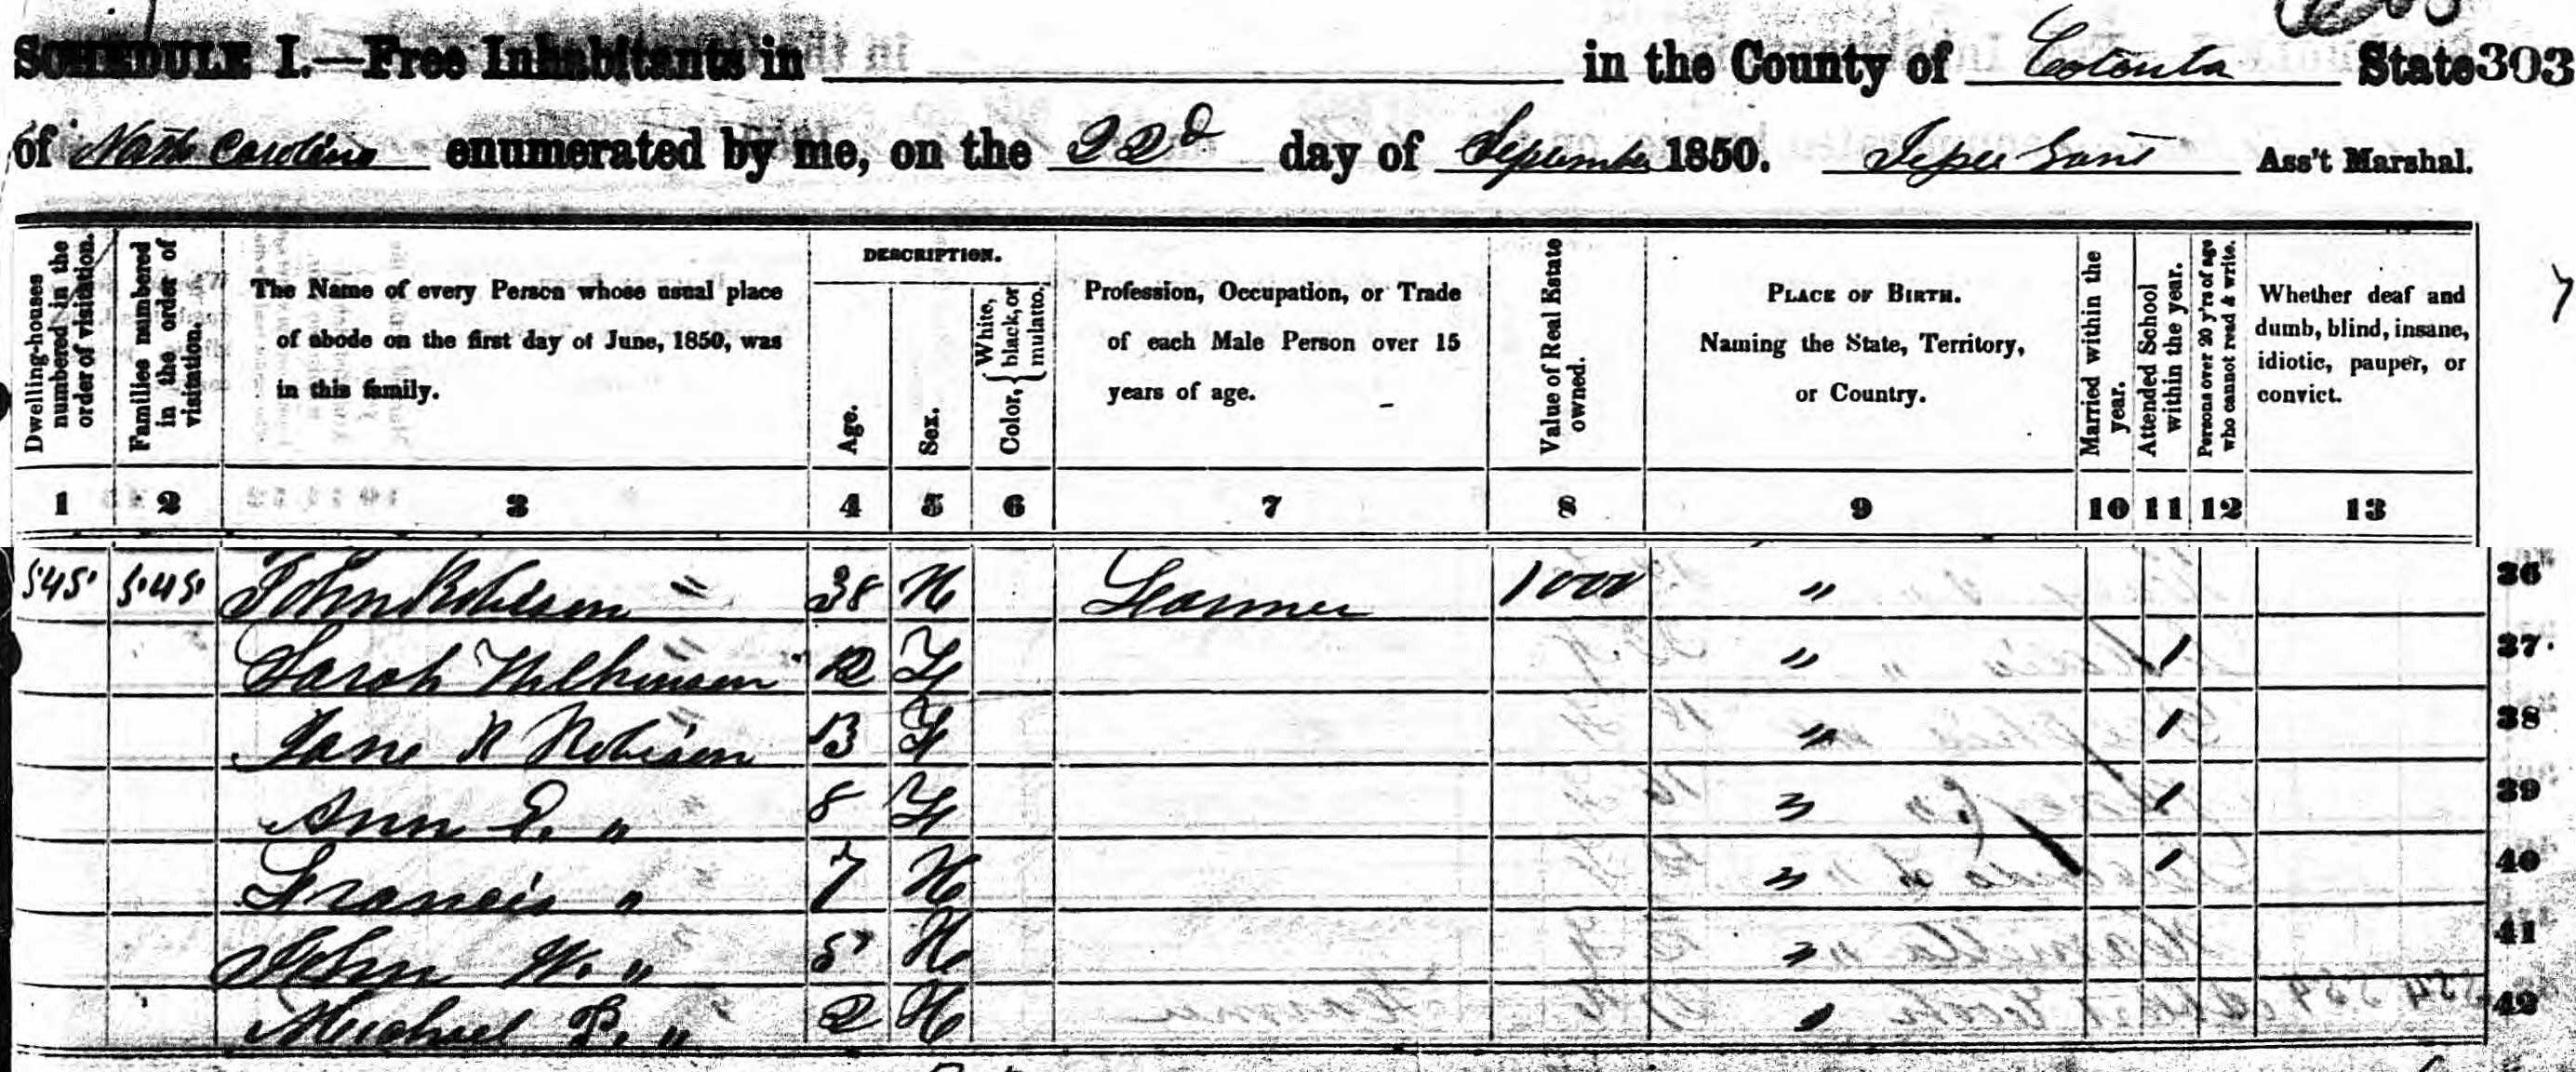 SCHEDULE I.—Free Inhabitants in in the County of State 303
of North Carolina enumerated by me, on the 22d day of September 1850. Ass't Marshal.
Dwelling-houses numbered in the order of visitation.
Families numbered in the order of visitation.
The Name of every Person whose usual place of abode on the first day of June, 1850, was in this family.
DESCRIPTION.
Age.
Sex.
Color, { White, black, or mulatto.
Profession, Occupation, or Trade of each Male Person over 15 years of age.
Value of Real Estate owned.
PLACE OF BIRTH. Naming the State, Territory, or Country.
Married within the year.
Attended School within the year.
Persons over 20 y'rs of age who cannot read & write.
Whether deaf and dumb, blind, insane, idiotic, pauper, or convict.
1 2 3 4 5 6 7 8 9 10 11 12 13
545 545 John Robison " 38 M Farmer 1000 " 36
Sarah Wilkinson 12 F " 1 37
Jane R Robison 13 F " 1 38
Ann E. " 8 F " 1 39
Francis " 7 M " 1 40
John W. " 5 M " 41
Michael P. " 2 M " 42